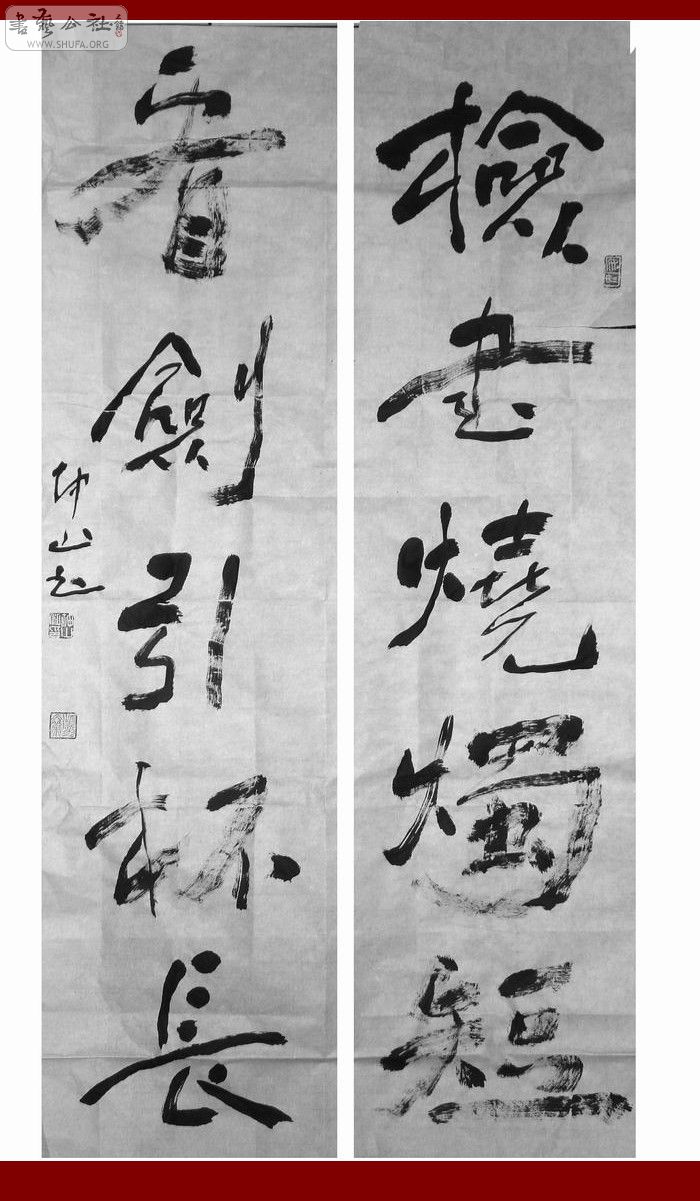 書藝公社
WWW.SHUFA.ORG
檢書燒燭短
看劍引杯長
山